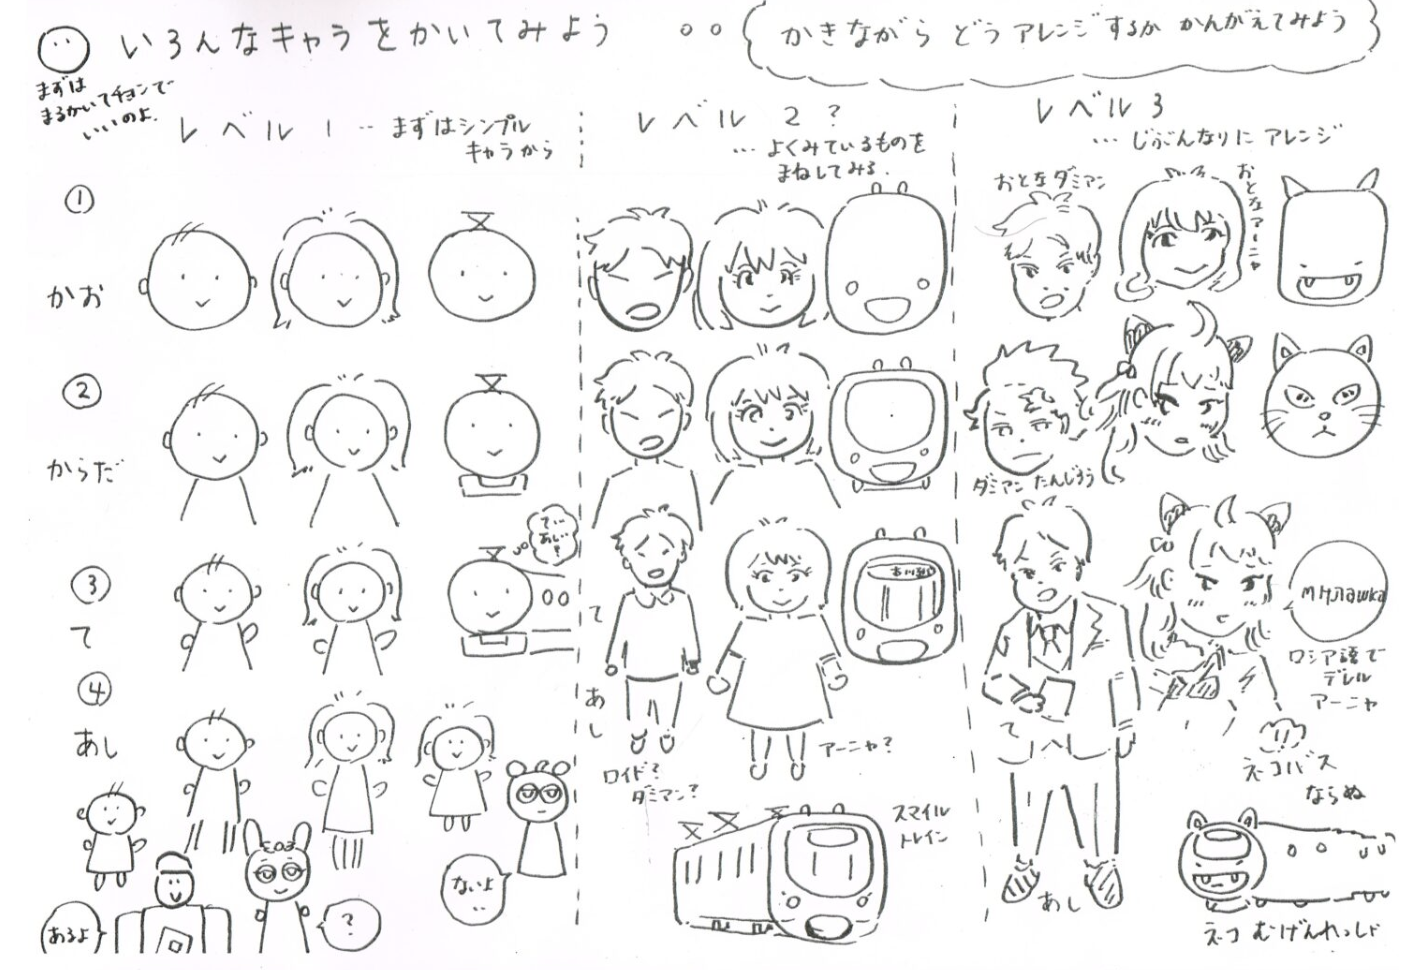 いろんなキャラをかいてみよう
かきながら どう アレンジするか かんがえてみよう
まずは
まるかいてチョンで
いいのよ.
レベル 1 … まずはシンプル
キャラから
レベル 2 ?
… よくみているものを
まねしてみる.
レベル 3
… じぶんなりに アレンジ
①
かお
②
からだ
③
て
④
あし
あるよ
?
ないよ
て
あし
ロイド?
ダミアン?
アーニャ?
スマイル
トレイン
おとなダミアン
おとなアーニャ
ダミアン たんじろう
て
あし
ロシア語で
デレル
アーニャ
ネコバス
ならぬ
ネコ むげんれっしゃ